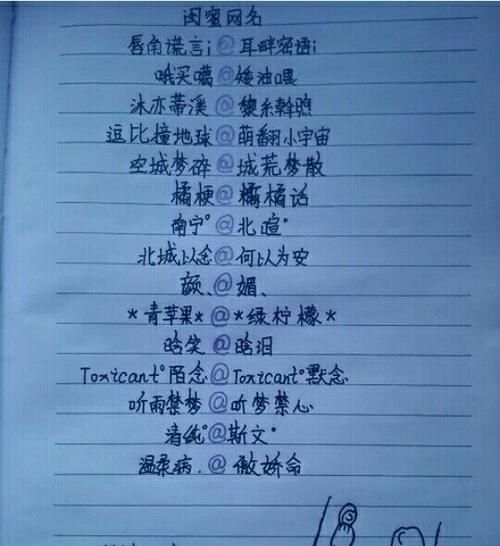 闺蜜网名
唇角谎言i@耳畔密语i
哦买噶@矮油喂
沐亦蒂溪@黎糸幹煦
逗比撞地球@萌翻小宇宙
空城梦碎@城荒梦散
橘梗@橘话
南宁°@北暄°
北城以念@何以为安
颜、@媚、
*青苹果*@*绿柠檬*
晗笑@晗泪
Toxicant°陌念@Toxicant°默念
听雨禁梦@听梦禁心
清纯°@斯文°
温柔病.@傲娇命